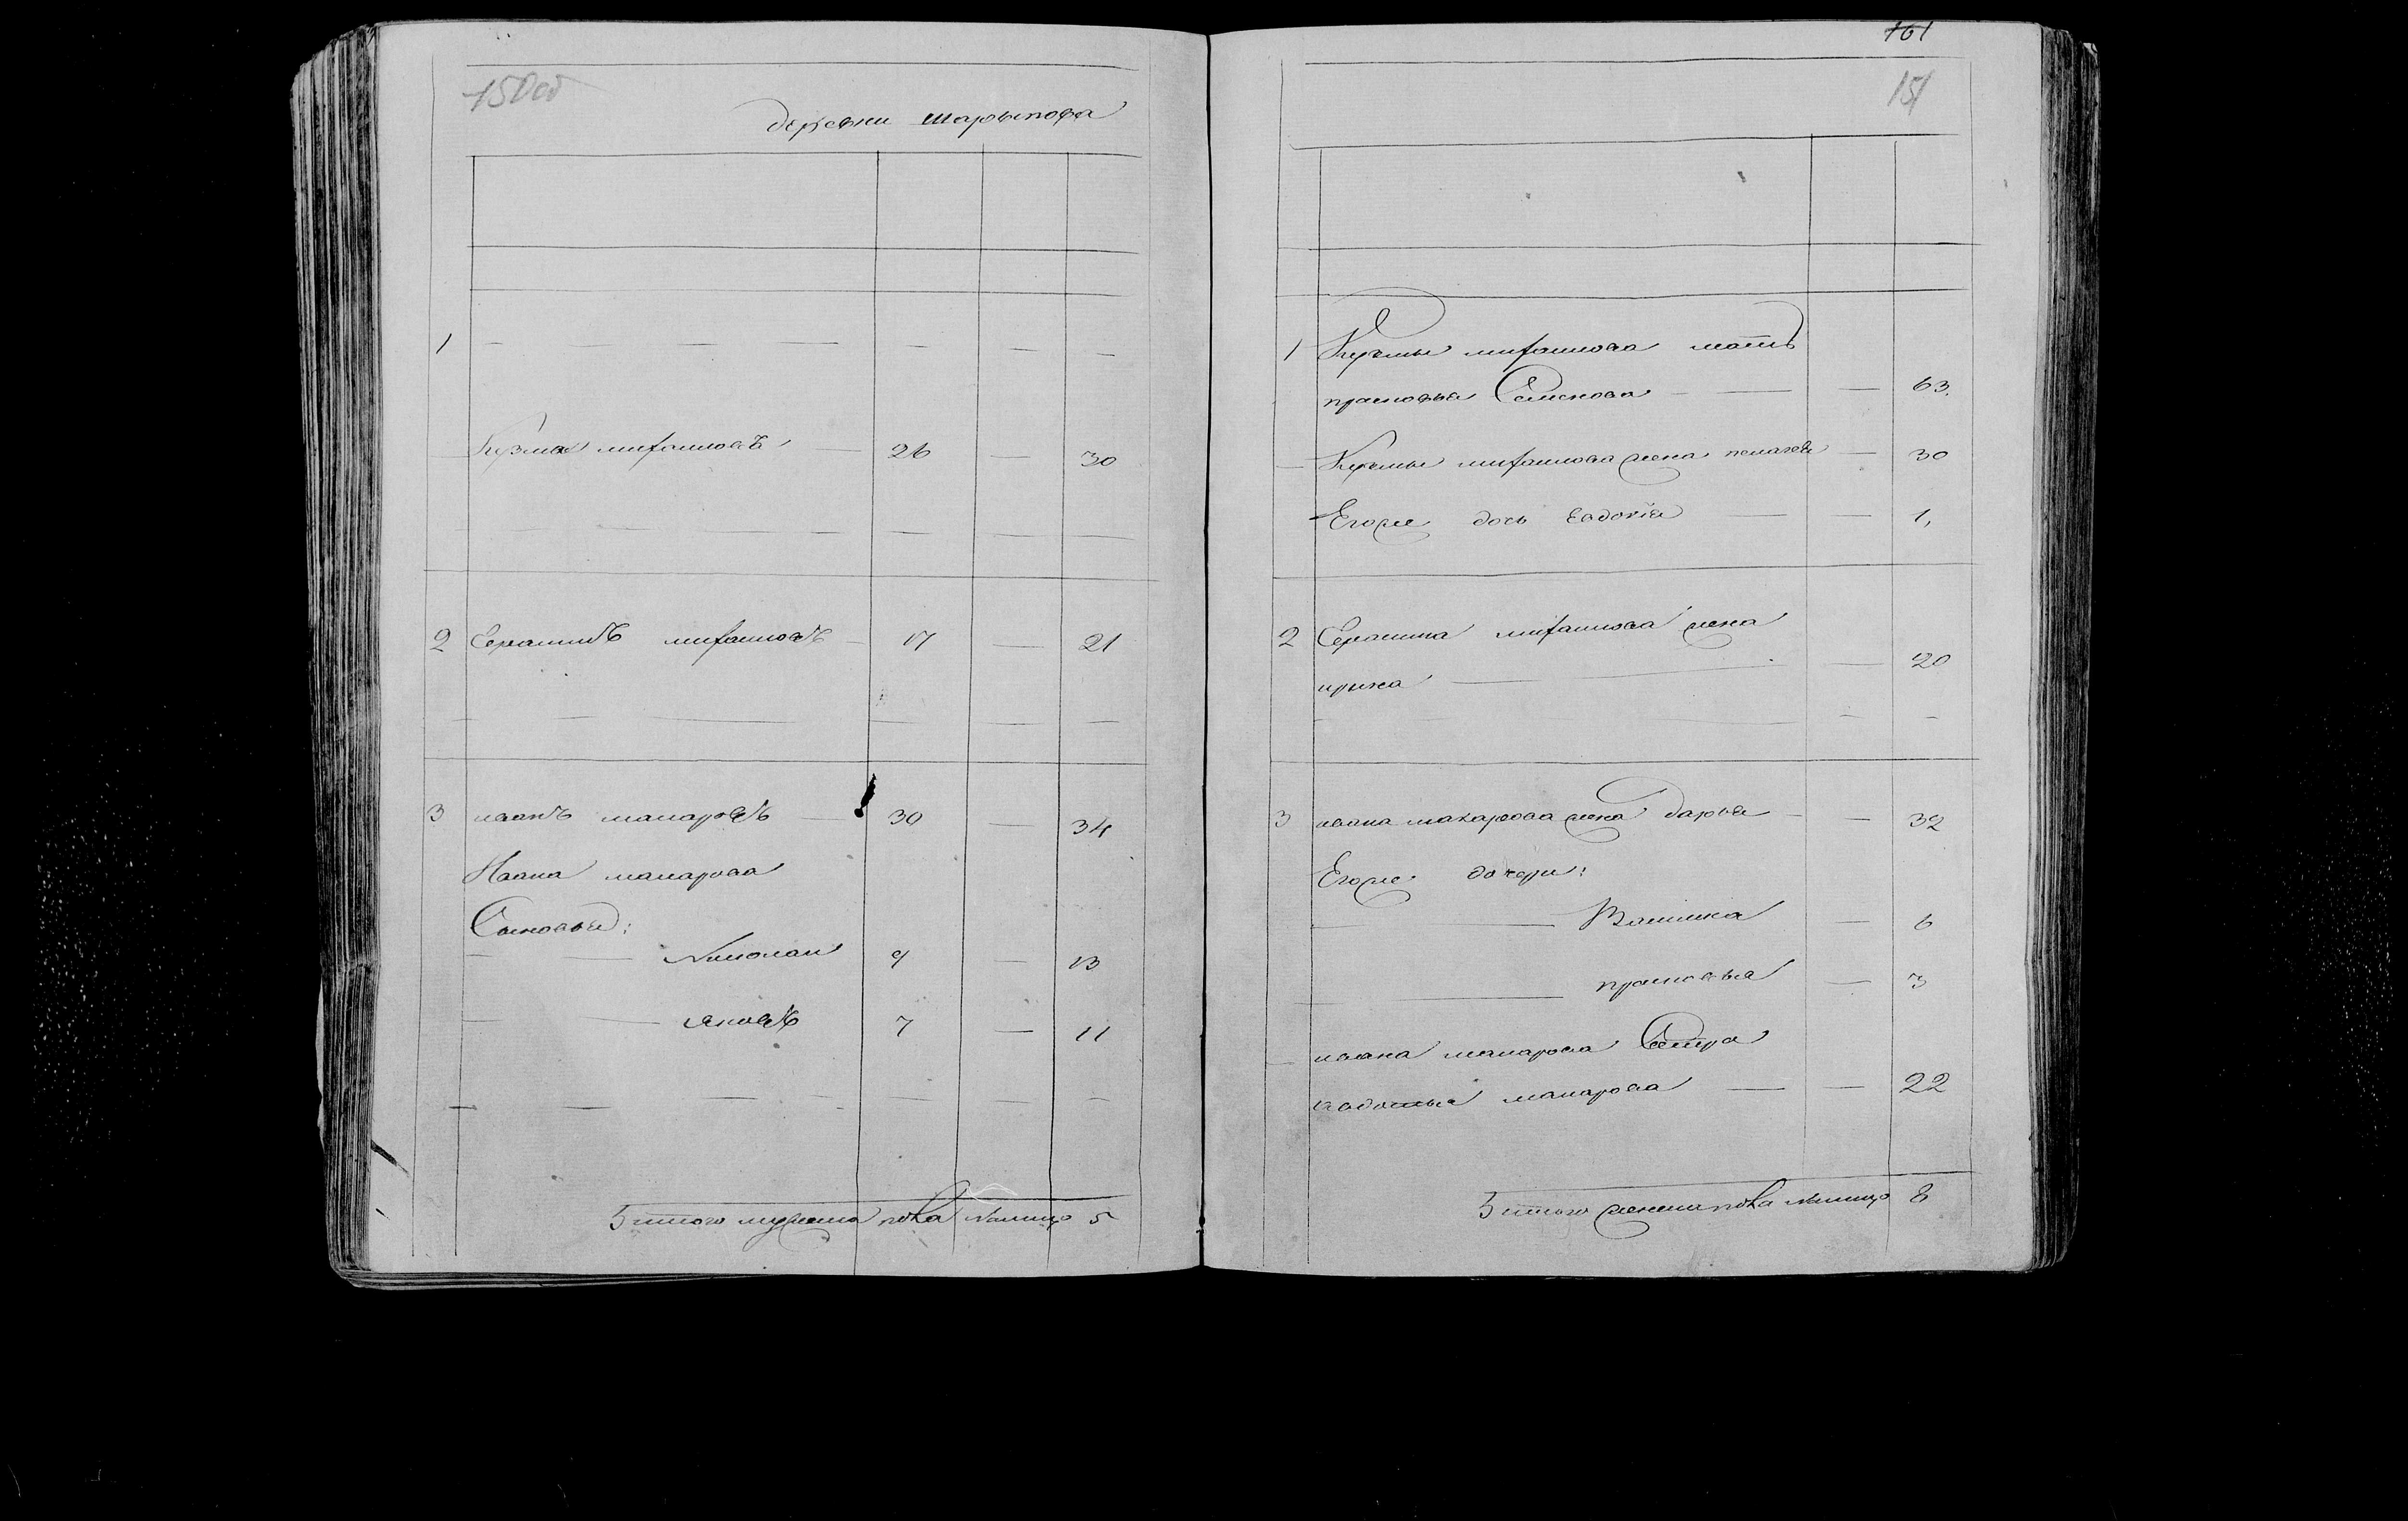 150об
деревни шарыпова
1
Кузма михаиловъ 26 30
2 Сераπионъ михаиловъ 17 21
3 иванъ макаровъ 30 34
Ивана макарова
Сыновья:
Николаи 9 13
яковъ 7 11
итого мужеска пола налицо 5
161
151
1 Кузмы михаилова мать
прасковья Семенова 63.
Кузмы михаилова жена пелагея 30
Егоже дочь Евдокия 1,
2 михаилова жена
ирина 20
3 ивана макарова жена Дарья 32
Егоже дочери:
6
прасковья 3
ивана макарова Сестра
макарова 22
итого женска пола налицо 8